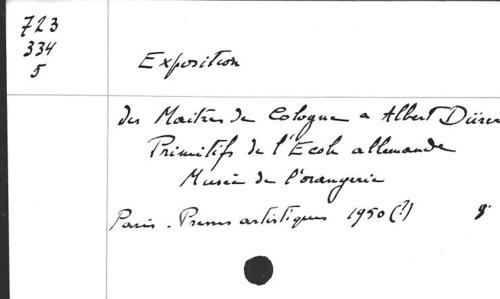 723
334
5
Exposition
des Maitres de Cologne a Albert Dürer
Primitifs de l'Ecole allemande
Musée de l'orangerie
Paris. Presses artistiques 1950 (?) 8°